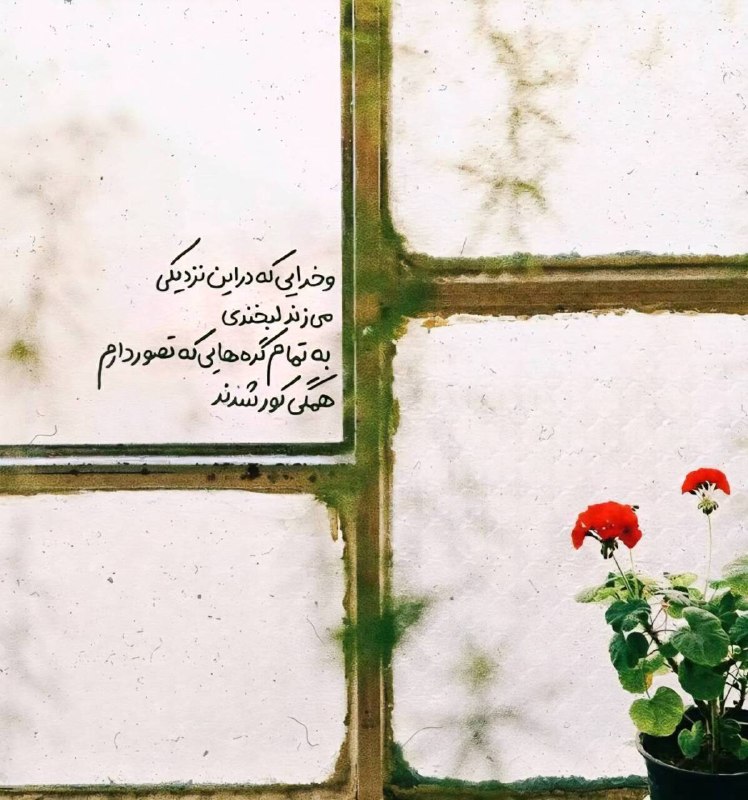 و خدایی که در این نزدیکی
می زند لبخندی
به تمام گره هایی که تصور دارم
همگی کور شدند